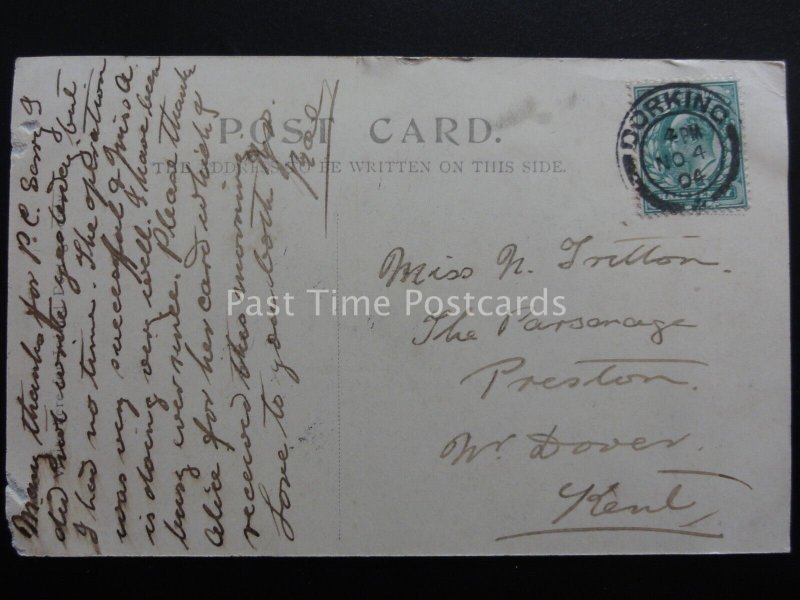 POST CARD.
THE ADDRESS TO BE WRITTEN ON THIS SIDE.
DORKING
4 PM
NO 4
04
Miss N. Tritton.
The Parsonage
Preston.
Nr. Dover.
Kent
Many thanks for P.C. Sorry I
did not write yesterday but
I had no time. The operation
was very successful & Miss A.
is doing very well. I have been
busy ever since. Please thank
Alice for her card which I
received this morning.
Love to you both
Past Time Postcards